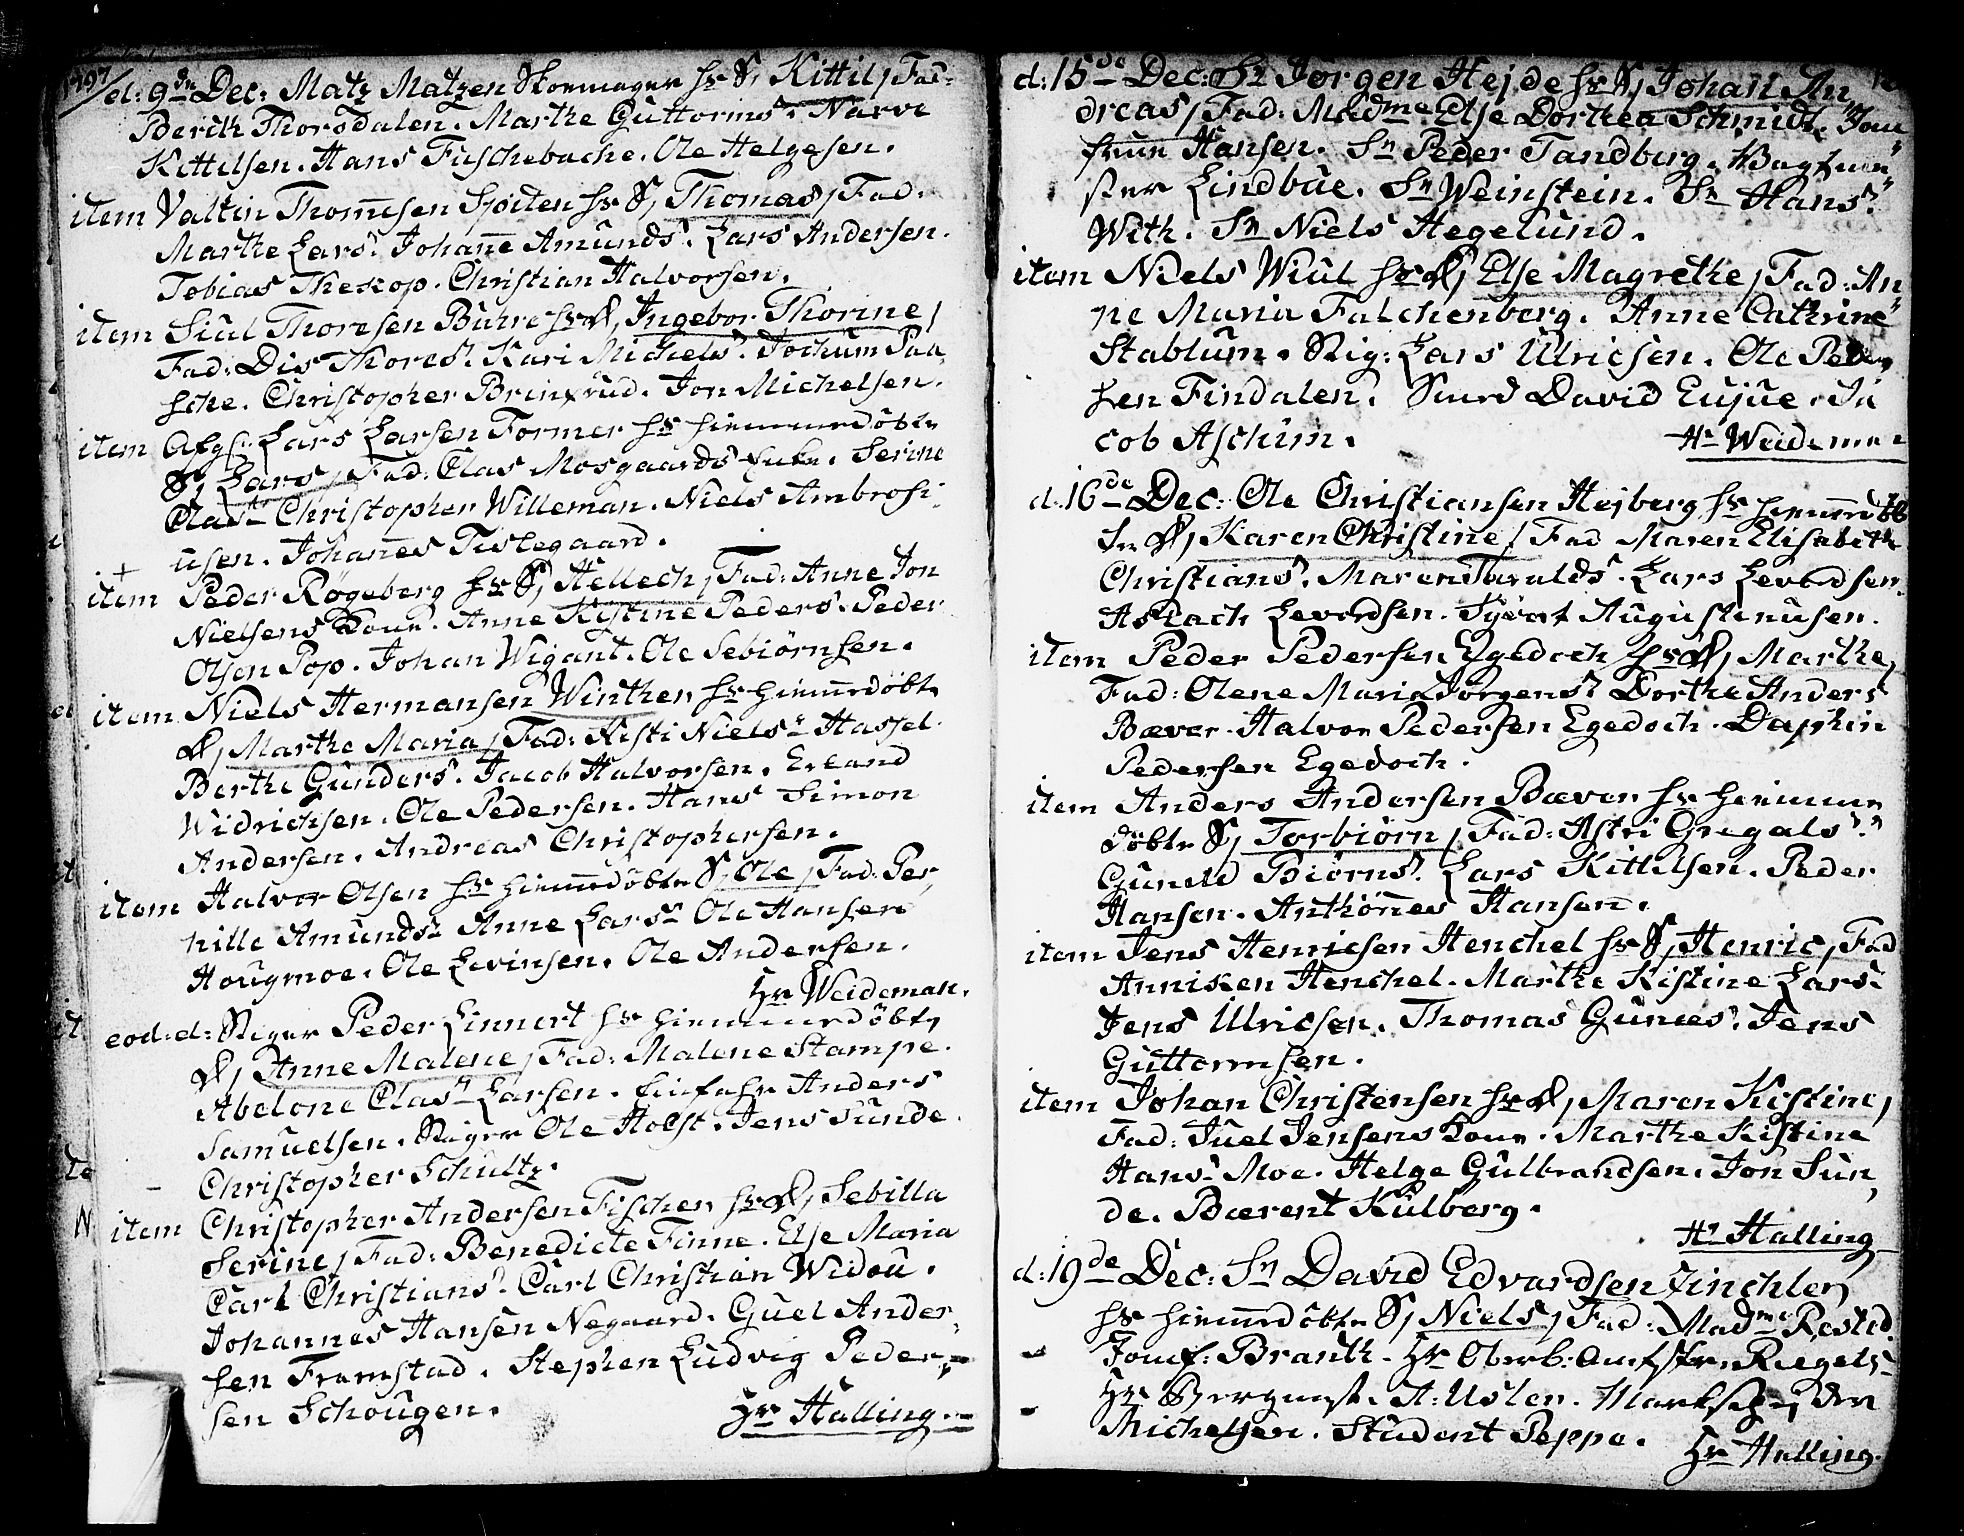 1797
d: 9de Dec: Matz Matzen Skoemager hs S, Kittil, Fad:
Berith Thorsdalen. Marthe Guttorms. Narve
Kittilsen. Hans Fischebache. Ole Helgesen.
item Valtin Thomesen Sjoiten hs S, Thomas, Fad:
Marthe Lars. Johane Amunds. Lars Andersen.
Tobias Theskop. Christian Halvorsen.
item Siul Thoresen Buhre hs D, Ingebor Thorine,
Fad: Dis Thores. Kari Michels. Jochum Paa
sche. Christopher Brinkrud. Jon Michelsen.
item Afgl: Lars Larsen Former hs hiemmedöbte
S, Lars, Fad: Clas Mosgaards Enke. Serine
Clas. Christopher Willeman. Niels Ambrosi
usen. Johanes Tislegaard.
item Peder Røgeberg hs S, Hellech, Fad: Anne Jon
Nielsens Kone. Anne Kistine Peders. Peder
Olsen Pop. Johan Wigant. Ole Sebiörnsen.
item Niels Hermansen Winther hs hiemmedöbte
D, Marthe Maria, Fad: Kisti Niels Hassel
Berthe Gunders. Jacob Halvorsen. Erland
Widrichsen. Ole Pedersen. Hans Simon
Andersen. Andreas Christophersen.
item Halvor Olsen hs hiemmedöbte S, Ole, Fad: Per
nille Amunds. Anne Lars. Ole Hansen
Hougmoe. Ole Levinsen. Ole Andersen.
Hr Weideman.
eod: d: Stiger Peder Linnert hs hiemmedöbte
D, Anne Malene, Fad: Malene Stampe.
Abelone Clas Larsen. Anders
Samuelsen. Stiger Ole Holst. Jens Sunde.
Christopher Schultz.
item Christopher Andersen Fischer hs D, Sebilla
Serine, Fad: Benedicte Finne. Else Maria
Carl Christians. Carl Christian Widou.
Johannes Hansen Negaard. Guel Ander
sen Framstad. Stephen Ludvig Peder
sen Schougen.
Hr Halling.
d: 15de Dec: Sr Jörgen Hejde hs S, Johan An
dreas, Fad: Madme Else Dorthea Schmidt. Jom
frue Hansen. Sr Peder Tandberg. Bagtme
ster Lindbüe. Sr Weinstein. Sr Hans
With. Sr Niels Hegelund.
item Niels Wiul hs D, Else Magrethe, Fad: An
ne Maria Falchenberg. Anne Cathrine
Stablum. Stig: Lars Ulricsen. Ole Peder
sen Findalen. Smed David Eujue. Ja
cob Aschim.
Hr Weideman
d: 16de Dec: Ole Christiansen Hejberg hs hiemmedöb
te D, Karen Christine, Fad Maren Elisabeth
Christians. Maren Taralds. Lars Levordsen.
Aslach Levordsen. Syvert Augustinusen.
item Peder Pedersen Egedoch hs D, Marthe,
Fad: Olene Maria Jörgens. Dorthe Anders
Bæver. Halvor Pedersen Egedoch. Daphin
Pedersen Egedoch.
item Anders Andersen Bæver hs hiemme
döbte S, Torbiörn, Fad: Astri Gregals.
Gunild Biörns. Lars Kittilsen. Peder
Hansen. Anthönnes Hansen.
item Jens Henricsen Henchel hs S, Henric, Fad
Anniken Henchel. Marthe Kistine Lars.
Jens Ulricsen. Thomas Gunnes. Jens
Guttormsen.
item Johan Christensen hs D, Maren Kistine,
Fad: Juel Jensens Kone. Marthe Kistine
Hans Moe. Helge Gulbrandsen. Jon Sun
de. Bærent Kulberg.
Hr Halling
d: 19de Dec: Sr David Edvardsen Zinchler,
hs hiemmedöbte S, Niels, Fad: Madme Rested.
Jomf: Branth. Hr Oberb: Amtsfr. Riegels
Hr A: Uslen.
Michelsen. Student Peppe.
Hr Halling.